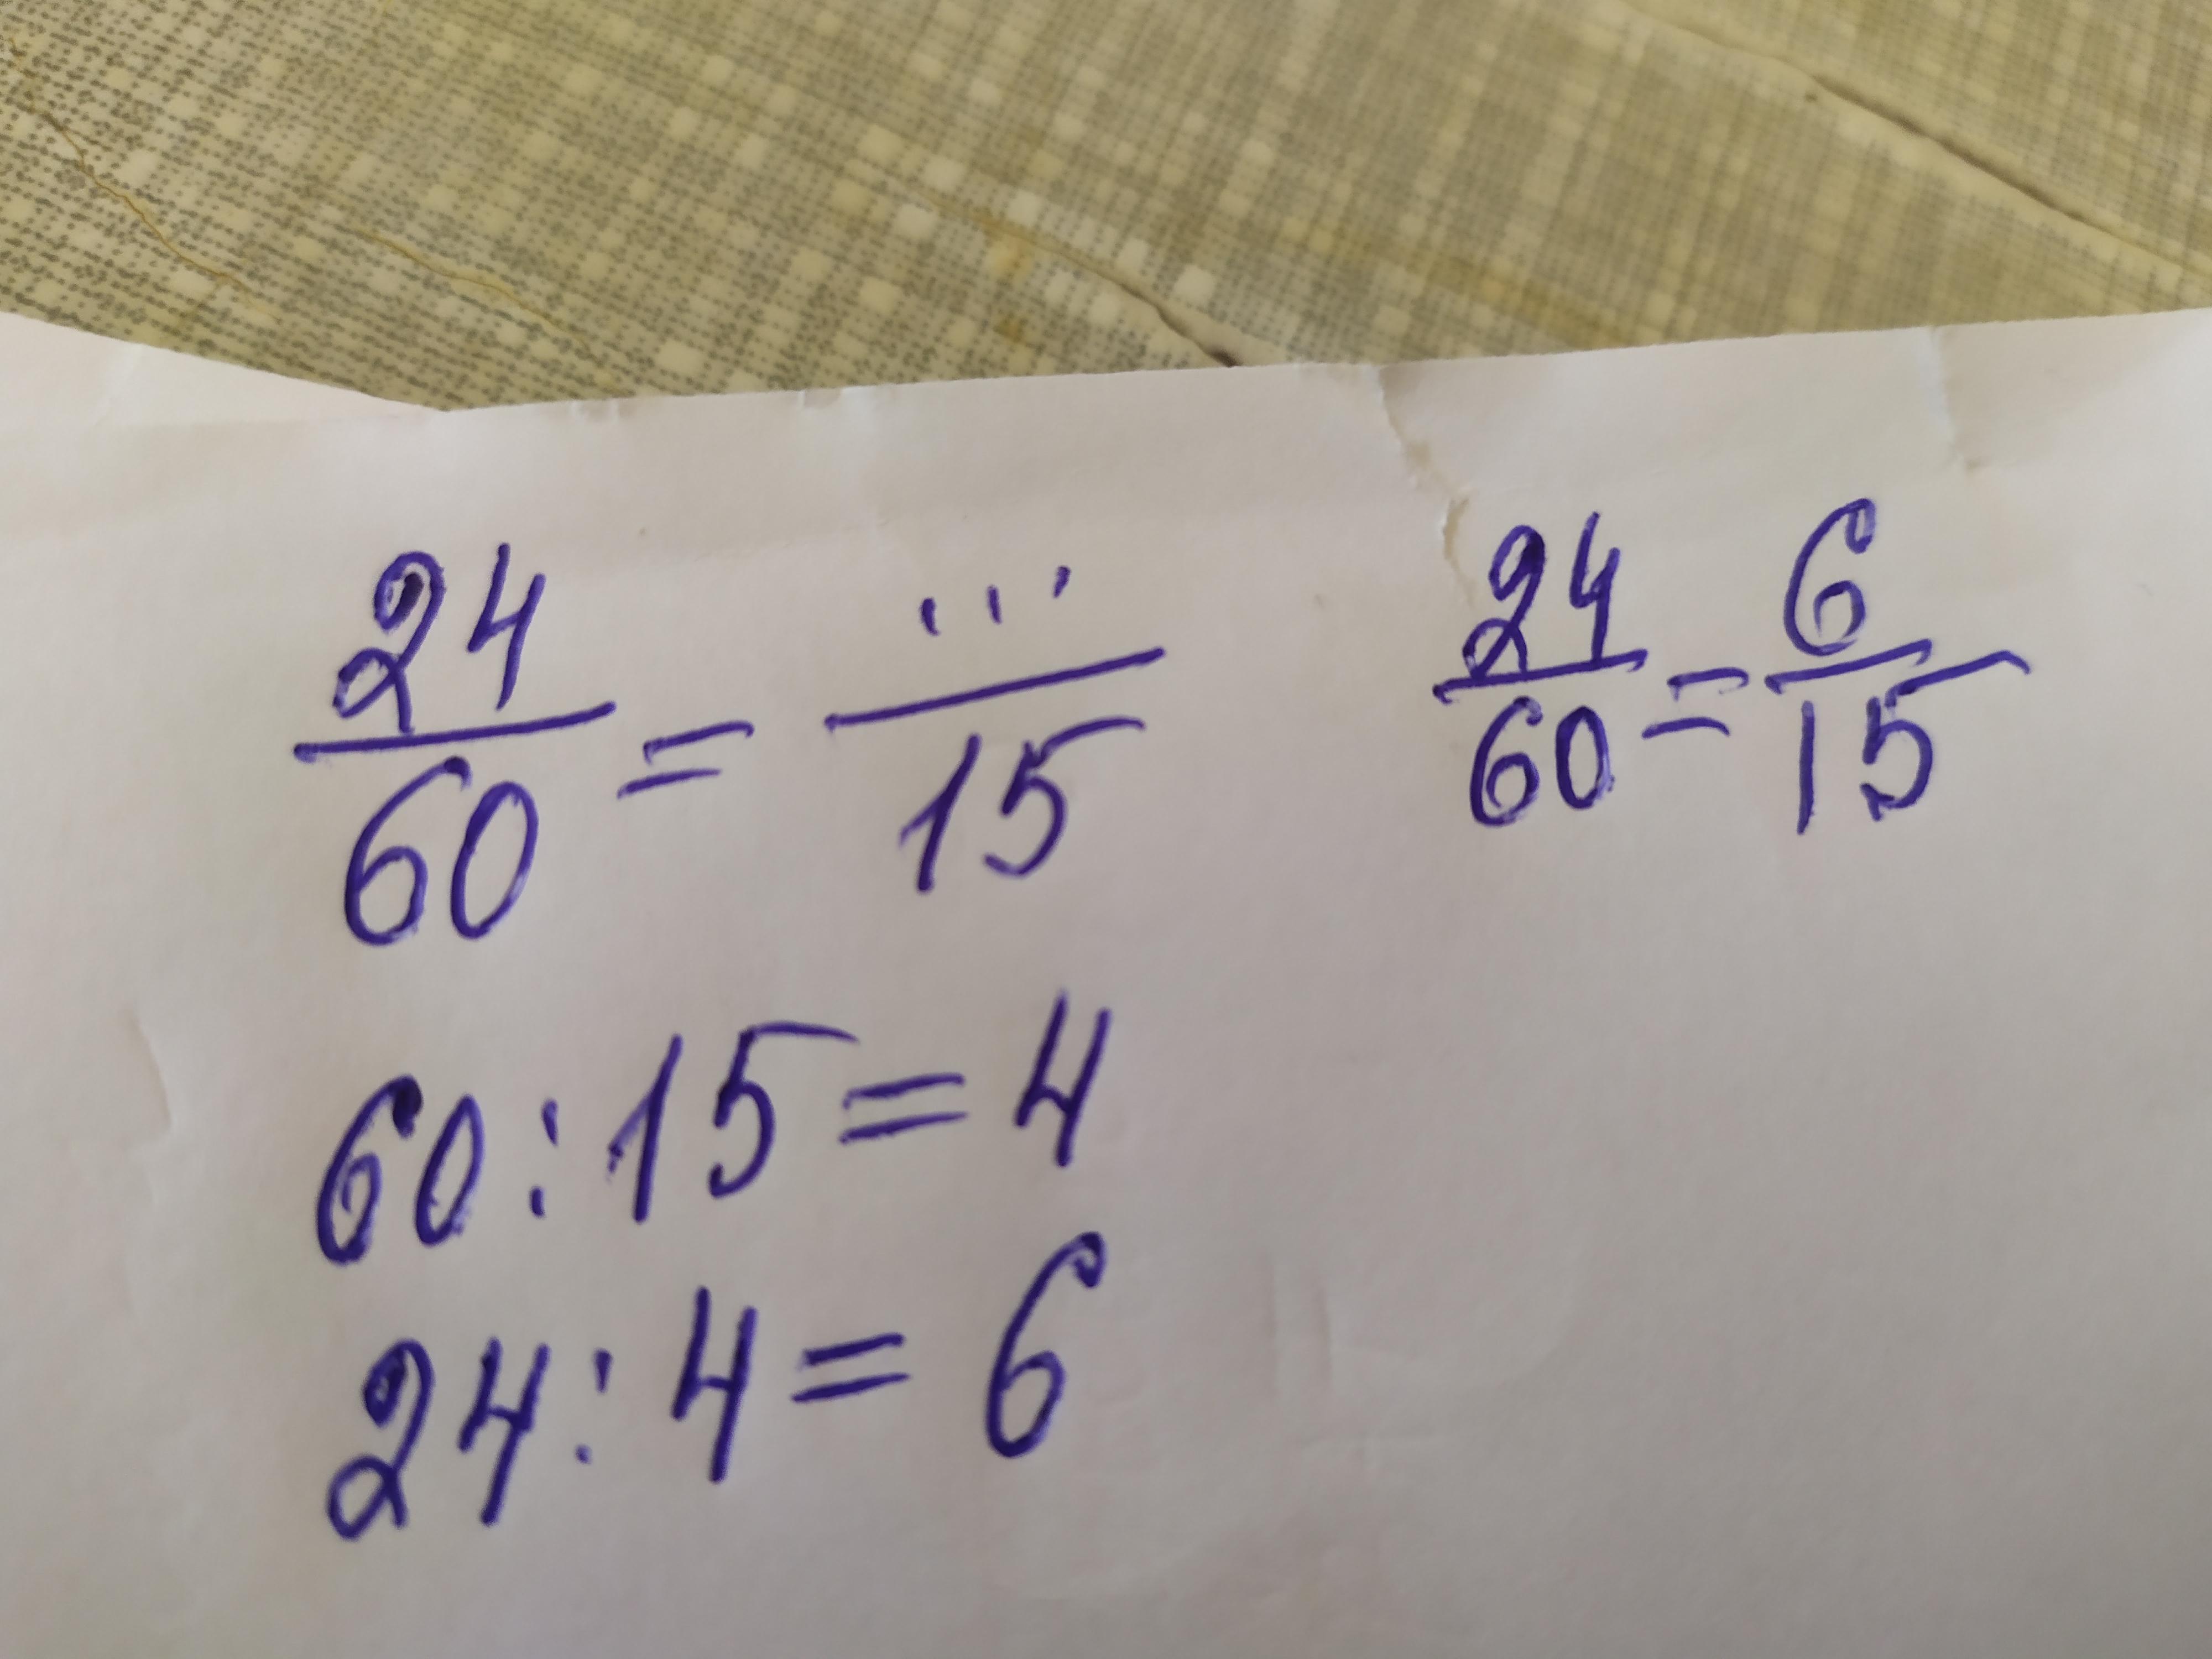 24/60 = .../15
24/60 = 6/15
60:15=4
24:4=6